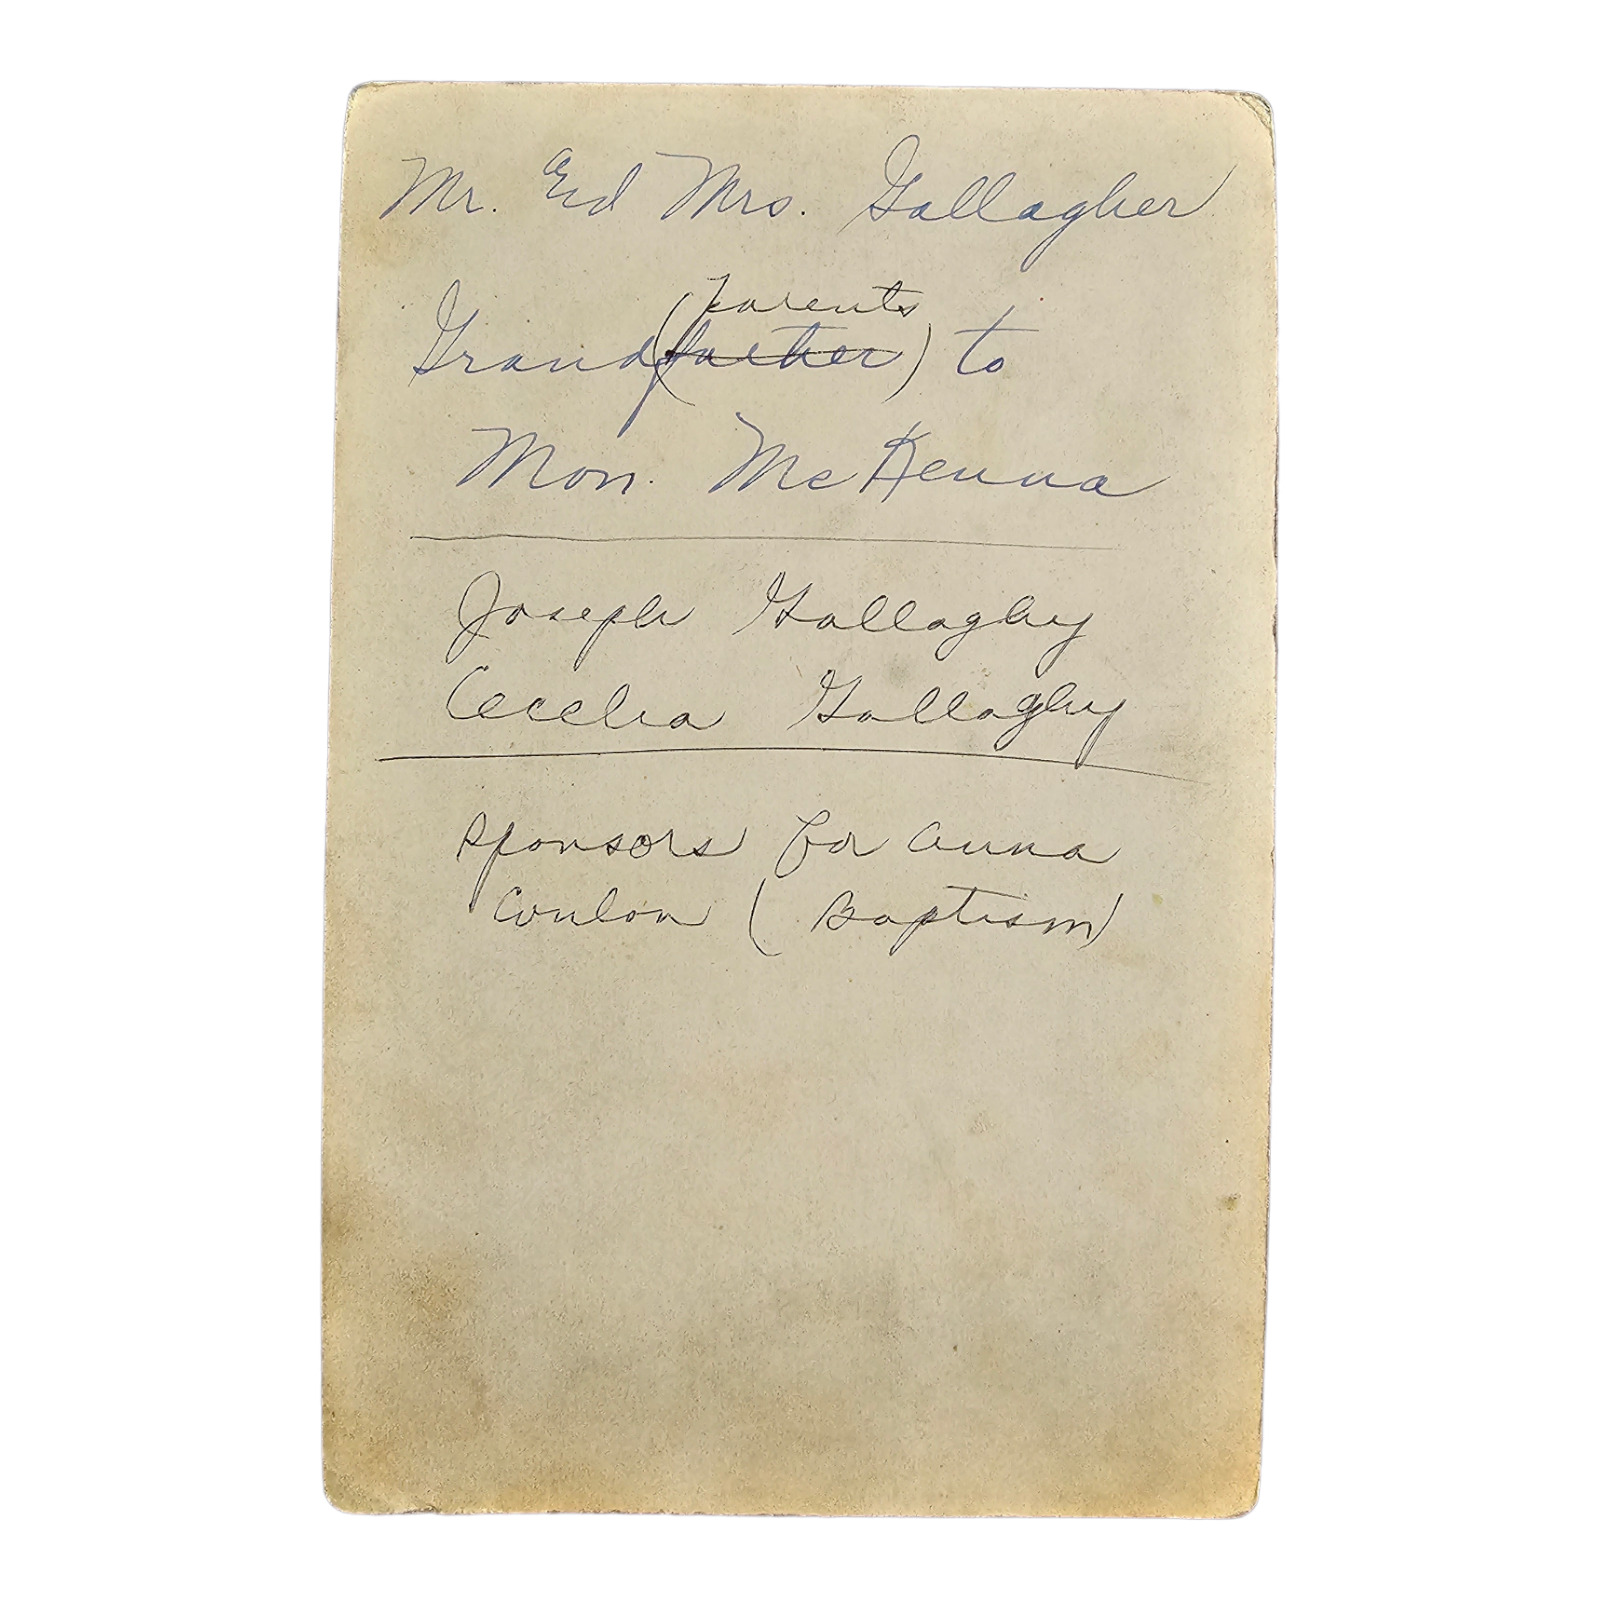 Mr. End Mrs. Gallagher
parents
Grand(father) to
Mon. McKenna
Joseph Gallaghy
Cecelia Gallaghy
Sponsors for Anna
Conlon (Baptism)